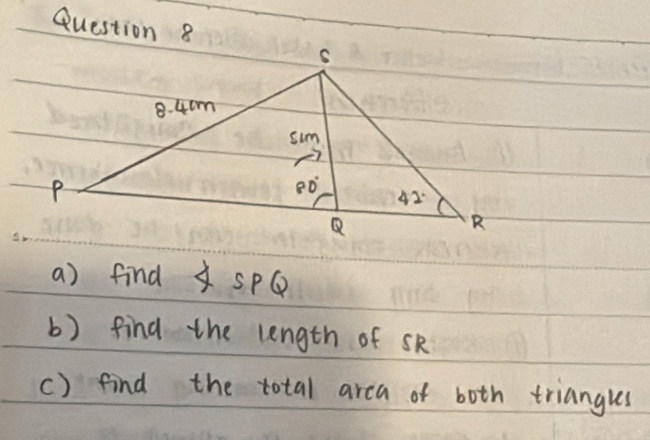 Question 8
S
8.4cm
5cm
80°
42°
P
Q
R
a) find ∡ SPQ
b) find the length of SR
c) find the total area of both triangles